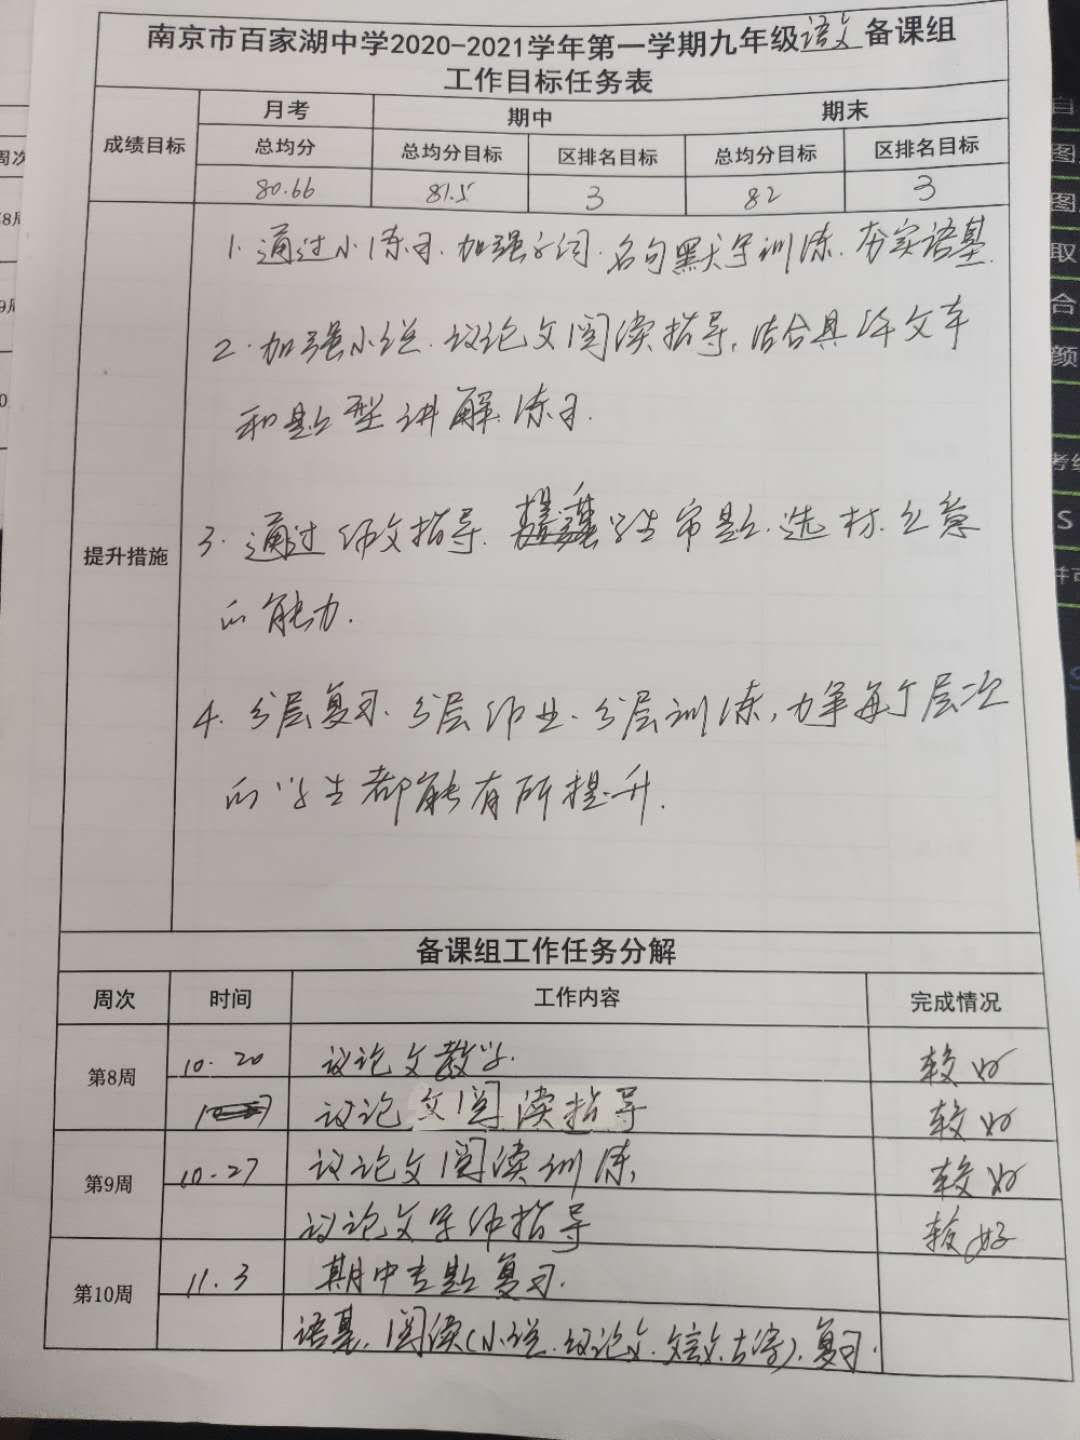 南京市百家湖中学2020-2021学年第一学期九年级语文备课组
工作目标任务表
成绩目标 月考 期中 期末
总均分 总均分目标 区排名目标 总均分目标 区排名目标
80.66 81.5 3 82 3
提升措施
1.通过小练习.加强字词.名句默写训练.夯实语基.
2.加强小说.议论文阅读指导,结合具体文章
和题型讲解.练习.
3.通过作文指导. 学生审题.选材.立意
的能力.
4.分层复习.分层作业.分层训练,力争每个层次
的学生都能有所提升.
备课组工作任务分解
周次 时间 工作内容 完成情况
第8周 10.20 议论文教学. 较好
议论文阅读指导 较好
第9周 10.27 议论文阅读训练, 较好
议论文写作指导 较好
第10周 11.3 期中专题复习.
语基.阅读(小说.议论文.文言文.古诗).复习.
周次
自
图
图
取
合
颜
S